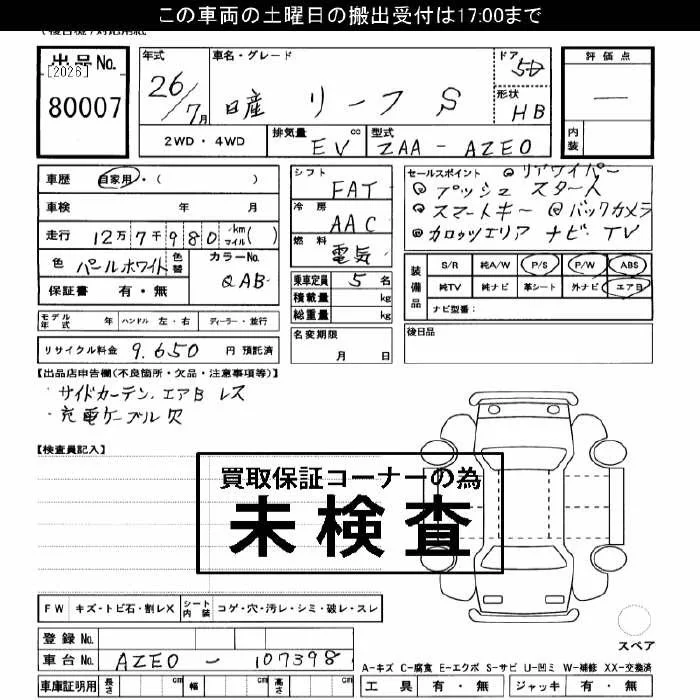 この車両の土曜日の搬出受付は17:00まで
出品No.
[2026]
80007
年式
26/7月
車名・グレード
日産 リーフ S
ドア
5D
形状
HB
評価点
—
内装
2WD・4WD
排気量 cc
EV
型式
ZAA-AZE0
車歴 自家用・( )
車検 年 月
走行 12万7千980 km マイル( )
色 パールホワイト 色替
カラーNo. QAB
保証書 有・無
シフト
FAT
冷房
AAC
燃料
電気
乗車定員 5名
積載量 kg
総重量 kg
セールスポイント
◎リアワイパー
◎プッシュスタート
◎スマートキー ◎バックカメラ
◎カロッツエリア ナビ・TV
装備品
S/R 純A/W P/S P/W ABS
純TV 純ナビ 革シート 外ナビ エアB
ナビ型番:
モデル年式 年 ハンドル 左・右 ディーラー・並行
名変期限
月 日
後日品
リサイクル料金 9,650 円 預託済
【出品店申告欄(不良箇所・欠品・注意事項等)】
・サイドカーテンエアB レス
・充電ケーブル欠
【検査員記入】
買取保証コーナーの為
未検査
FW キズ・トビ石・割レX シート内装 コゲ・穴・汚レ・シミ・破レ・スレ
登録No.
車台No. AZE0-107398
車庫証明用 長さ cm 幅 cm 高さ cm
スペア
A-キズ C-腐食 E-エクボ S-サビ U-凹ミ W-補修 XX-交換済
工具 有・無 ジャッキ 有・無